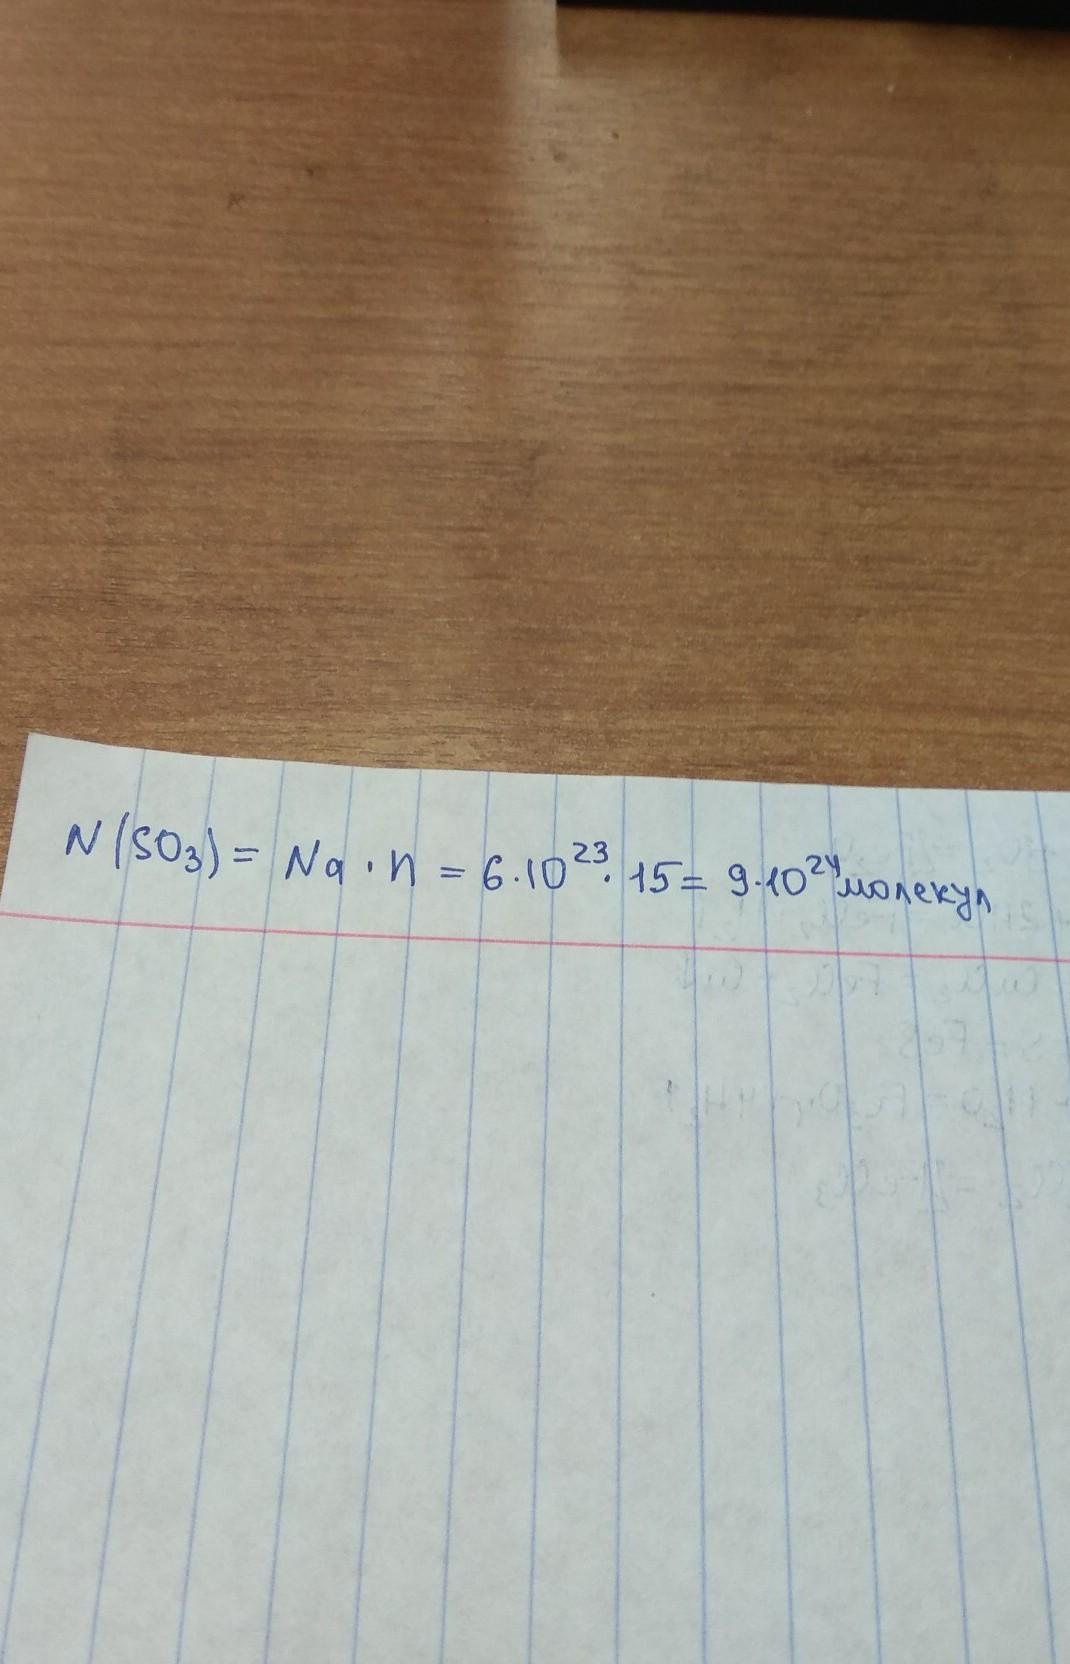 N(SO₃) = Na · n = 6·10²³ · 15 = 9·10²⁴ молекул